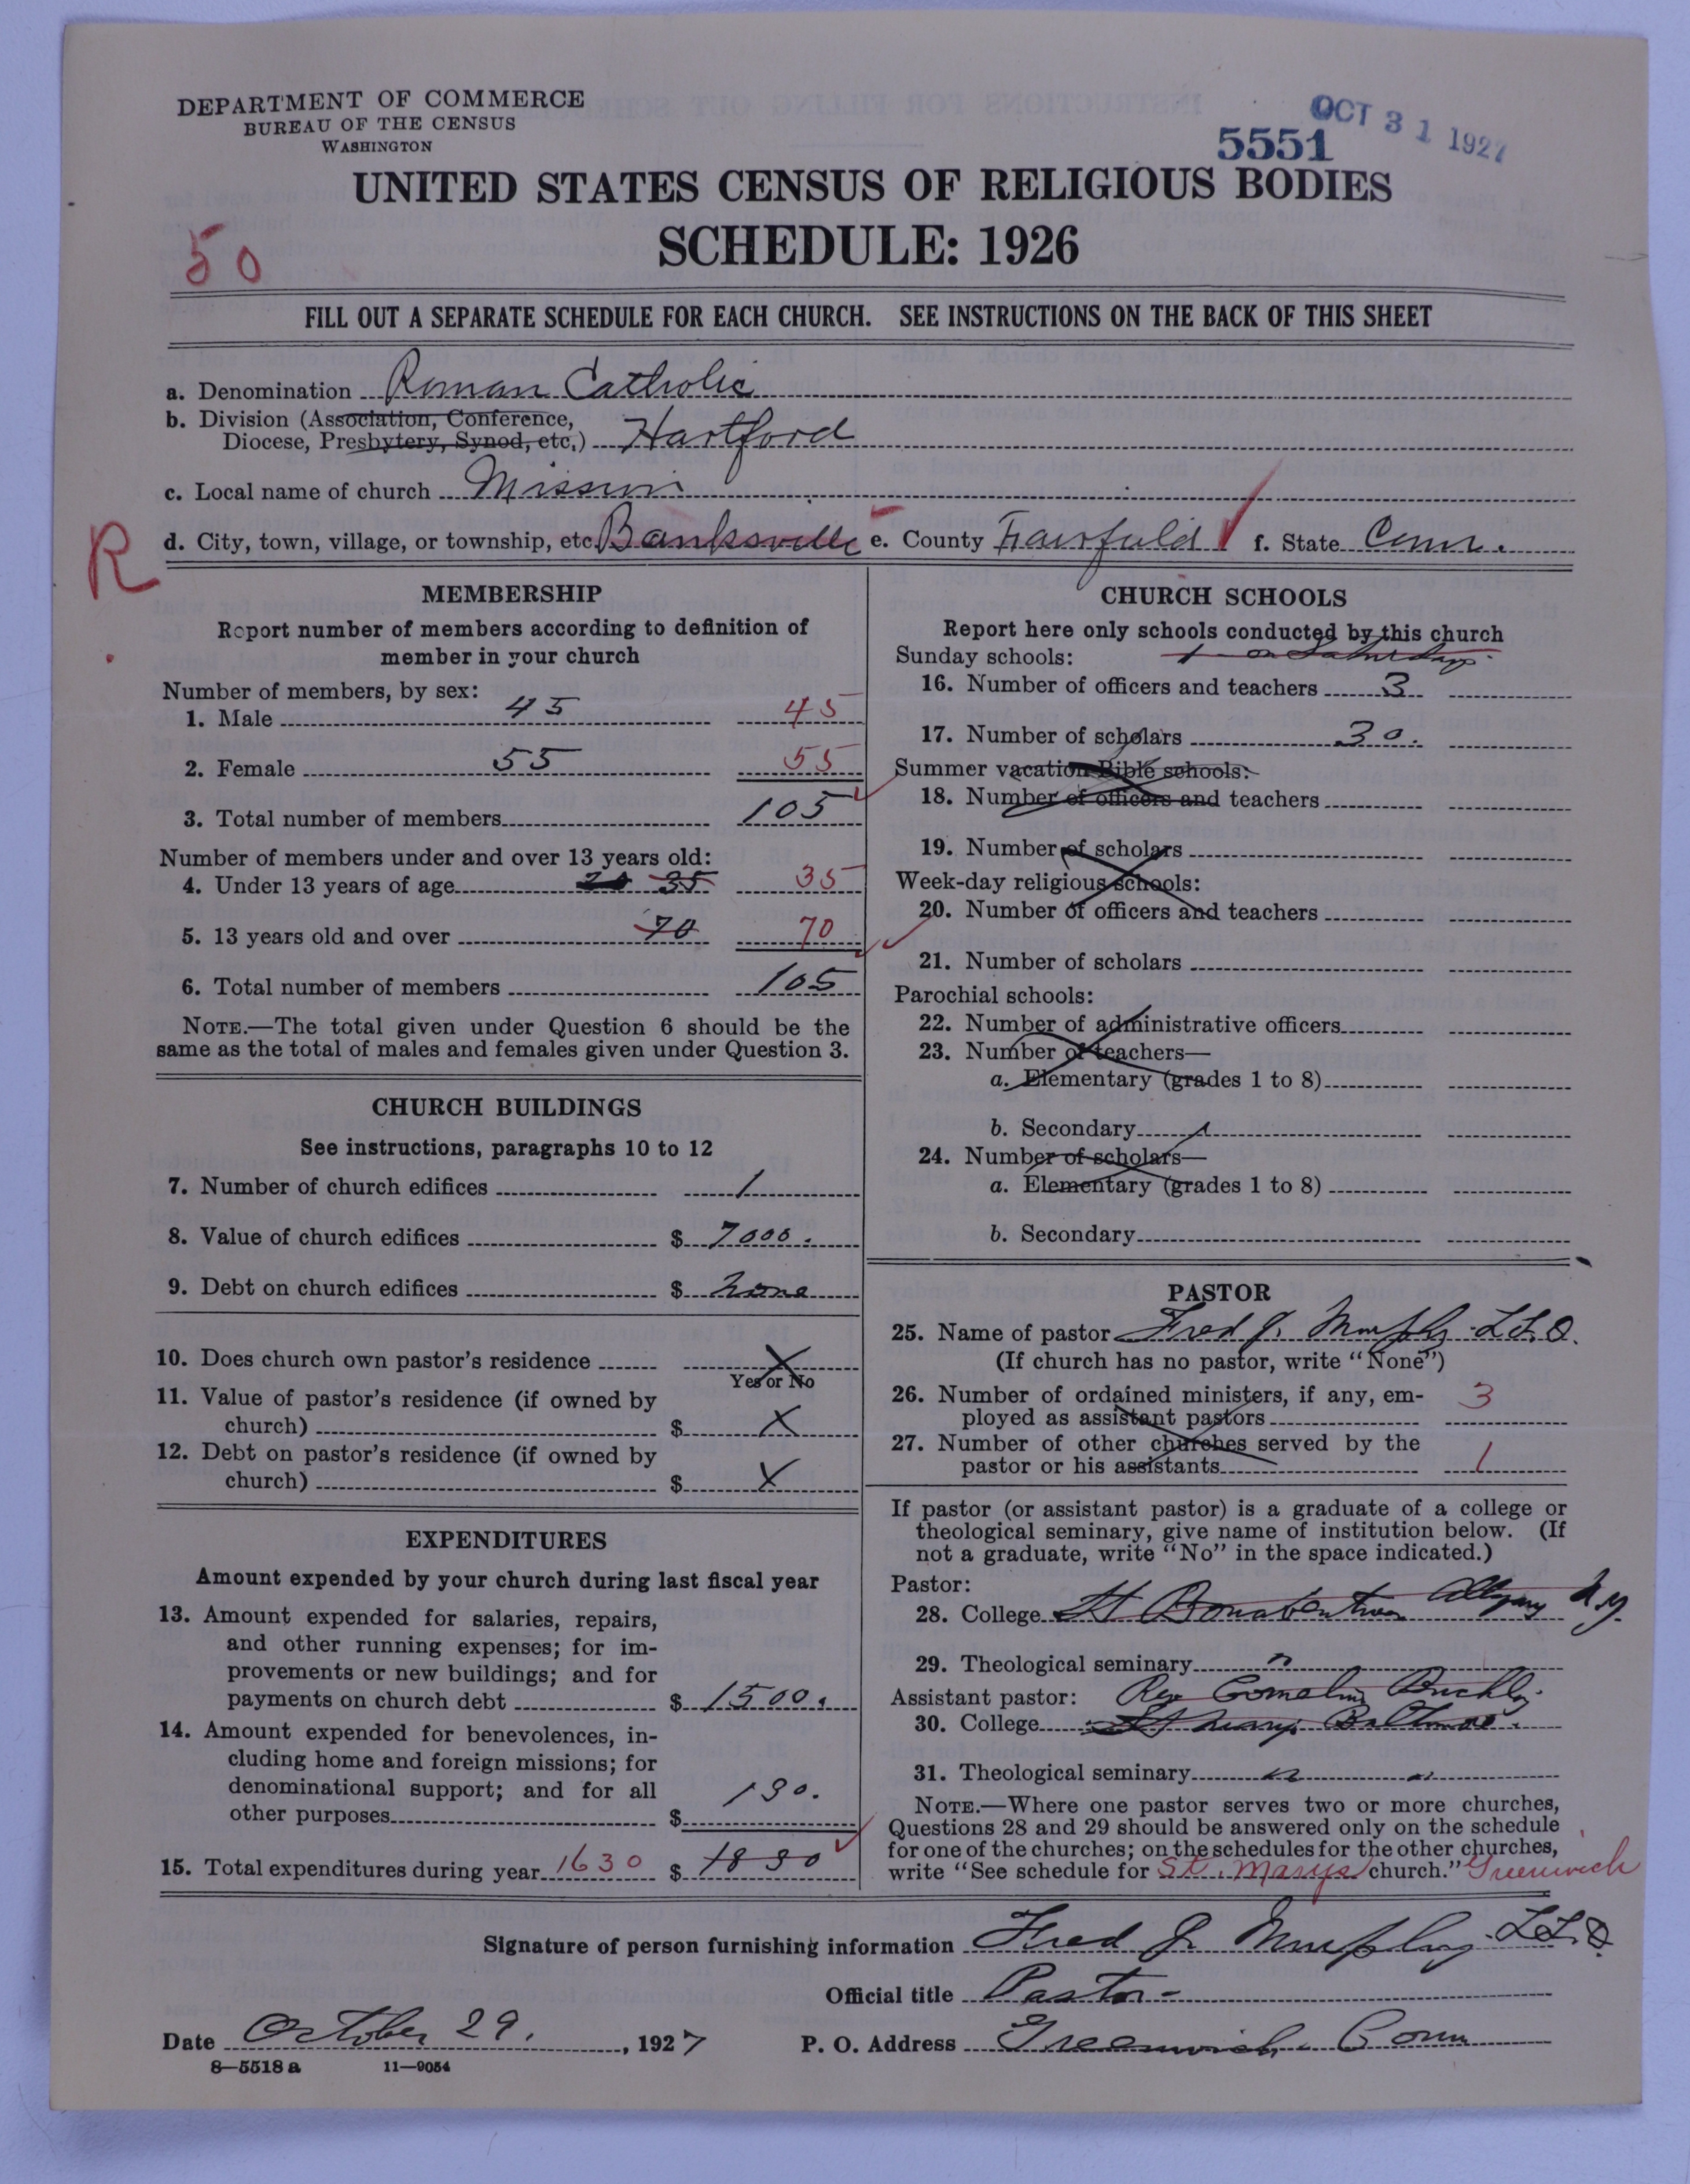 DEPARTMENT OF COMMERCE
BUREAU OF THE CENSUS
WASHINGTON
OCT 31 1927
5551
UNITED STATES CENSUS OF RELIGIOUS BODIES
SCHEDULE: 1926
50
FILL OUT A SEPARATE SCHEDULE FOR EACH CHURCH. SEE INSTRUCTIONS ON THE BACK OF THIS SHEET
a. Denomination Roman Catholic
b. Division (Association, Conference,
Diocese, Presbytery, Synod, etc.) Hartford
c. Local name of church Mission
R
d. City, town, village, or township, etc. Banksville e. County Fairfield f. State Conn.
MEMBERSHIP
Report number of members according to definition of
member in your church
Number of members, by sex:
1. Male 45 45
2. Female 55 55
3. Total number of members 105
Number of members under and over 13 years old:
4. Under 13 years of age 35 35
5. 13 years old and over 70 70
6. Total number of members 105
NOTE.—The total given under Question 6 should be the
same as the total of males and females given under Question 3.
CHURCH BUILDINGS
See instructions, paragraphs 10 to 12
7. Number of church edifices 1
8. Value of church edifices $ 7000.
9. Debt on church edifices $ none
10. Does church own pastor's residence X
Yes or No
11. Value of pastor's residence (if owned by
church) $ X
12. Debt on pastor's residence (if owned by
church) $ X
EXPENDITURES
Amount expended by your church during last fiscal year
13. Amount expended for salaries, repairs,
and other running expenses; for im-
provements or new buildings; and for
payments on church debt $ 1500.
14. Amount expended for benevolences, in-
cluding home and foreign missions; for
denominational support; and for all
other purposes $ 130.
15. Total expenditures during year 1630 $ 1830
CHURCH SCHOOLS
Report here only schools conducted by this church
Sunday schools: 1 on Saturdays
16. Number of officers and teachers 3
17. Number of scholars 30.
Summer vacation Bible schools:
18. Number of officers and teachers
19. Number of scholars
Week-day religious schools:
20. Number of officers and teachers
21. Number of scholars
Parochial schools:
22. Number of administrative officers
23. Number of teachers—
a. Elementary (grades 1 to 8)
b. Secondary
24. Number of scholars—
a. Elementary (grades 1 to 8)
b. Secondary
PASTOR
25. Name of pastor Fred J. Murphy LL.D.
(If church has no pastor, write "None")
26. Number of ordained ministers, if any, em-
ployed as assistant pastors 3
27. Number of other churches served by the
pastor or his assistants 1
If pastor (or assistant pastor) is a graduate of a college or
theological seminary, give name of institution below. (If
not a graduate, write "No" in the space indicated.)
Pastor:
28. College St Bonaventure Allegany N.Y.
29. Theological seminary "
Assistant pastor: Rev Cornelius Buckley
30. College St Marys Baltimore.
31. Theological seminary " "
NOTE.—Where one pastor serves two or more churches,
Questions 28 and 29 should be answered only on the schedule
for one of the churches; on the schedules for the other churches,
write "See schedule for St. Marys church." Greenwich
Signature of person furnishing information Fred J Murphy LL.D.
Official title Pastor
Date October 29. , 1927 P. O. Address Greenwich Conn
8—5518 a 11—9054